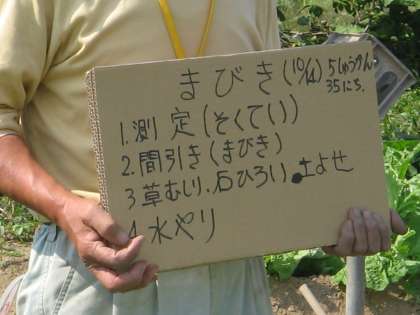 まびき(10/14) 5しゅうかん
35にち.
1.測定(そくてい)
2.間引き(まびき)
3 草むしり.石ひろい.土よせ
4.水やり